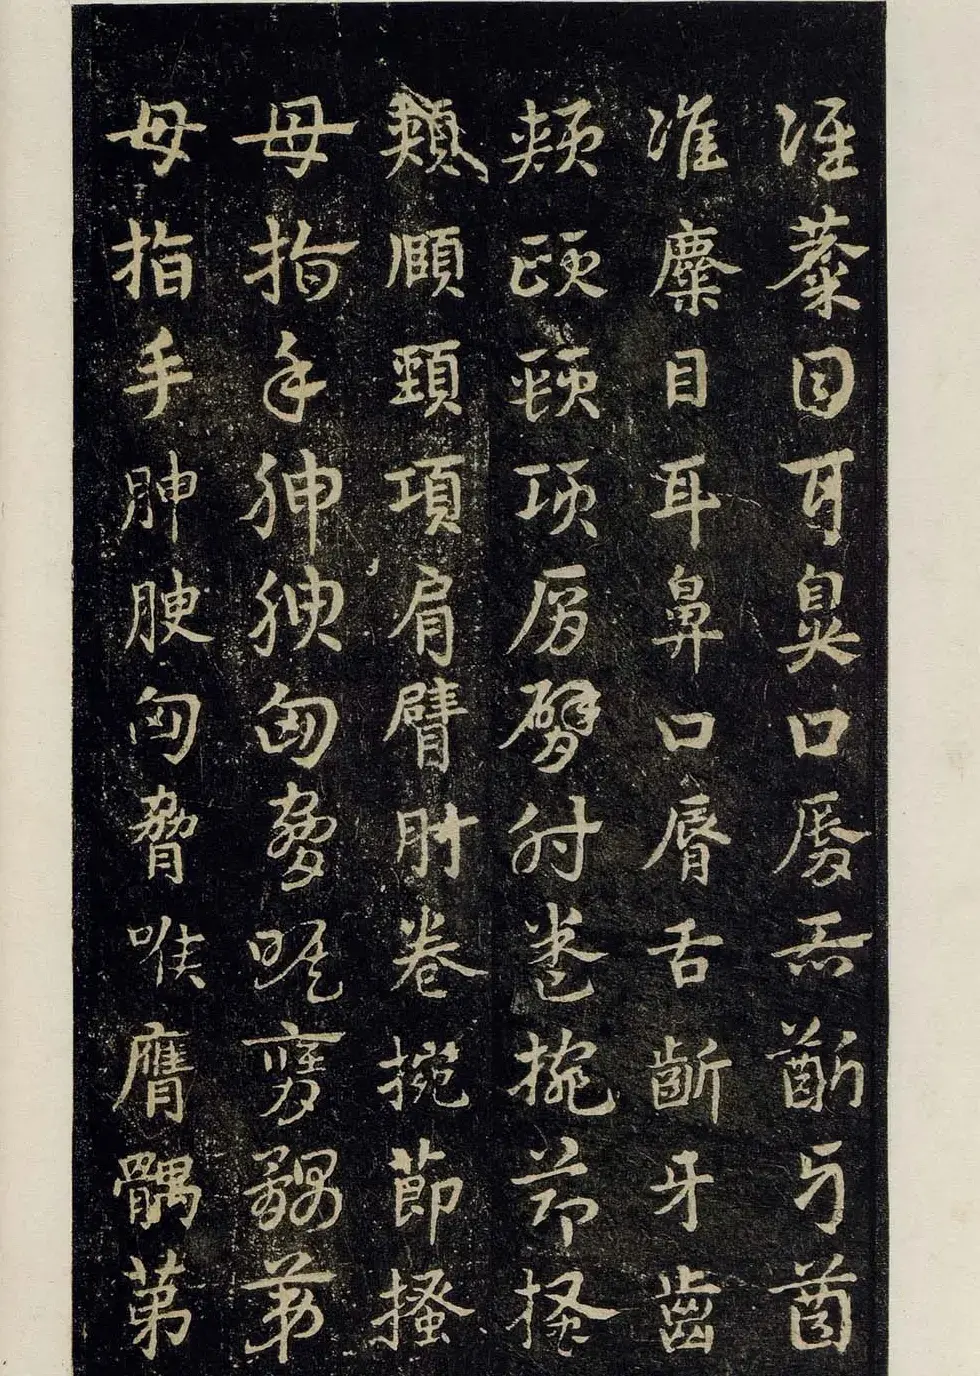 准麋目耳鼻口脣舌齗牙齒
准麋目耳鼻口脣舌齗牙齒
頰頤頸項肩臂肘卷捥節搔
頰頤頸項肩臂肘卷捥節搔
母指手胂腴匈脅喉膺髃第
母指手胂腴匈脅喉膺髃第